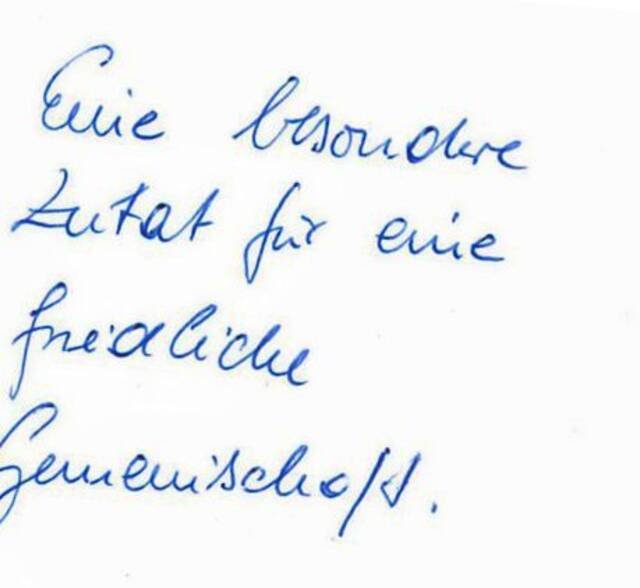 Eine besondere
Zutat für eine
friedliche
Gemeinschaft.